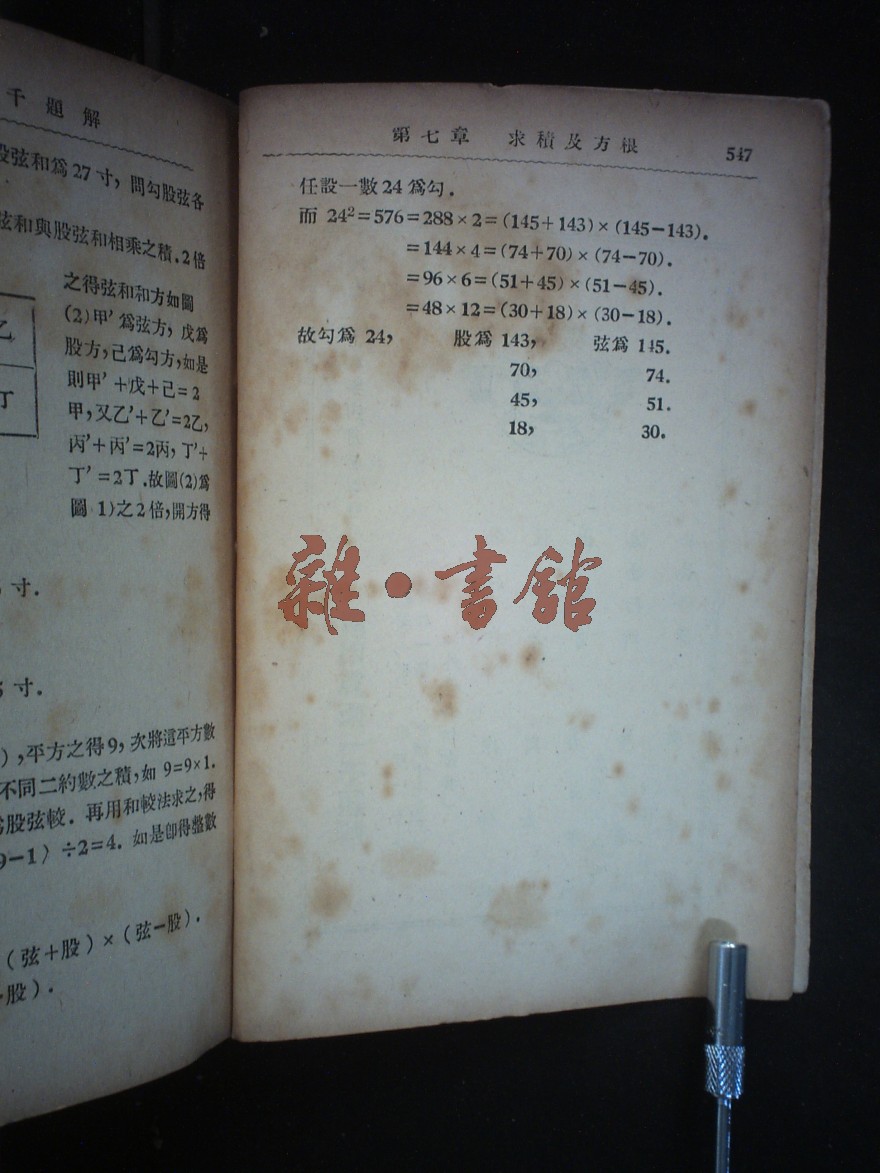 千題解
股弦和爲27寸，問勾股弦各
弦和與股弦和相乘之積．2倍
之得弦和和方如圖
(2)甲′爲弦方，戊爲
股方，己爲勾方，如是
則甲′+戊+己=2
甲，又乙′+乙′=2乙，
丙′+丙′=2丙，丁′+
丁′=2丁．故圖(2)爲
圖 1)之2倍，開方得
乙
丁
寸．
寸．
)，平方之得9，次將這平方數
不同二約數之積，如 9=9×1．
爲股弦較．再用和較法求之，得
9−1) ÷2=4．如是卽得整數
(弦+股)×(弦−股)．
股)．
第七章 求積及方根 547
任設一數24爲勾．
而 24²=576=288×2=(145+143)×(145−143)．
=144×4=(74+70)×(74−70)．
=96×6=(51+45)×(51−45)．
=48×12=(30+18)×(30−18)．
故勾爲 24， 股爲 143， 弦爲 145．
70， 74．
45， 51．
18， 30．
雜·書館